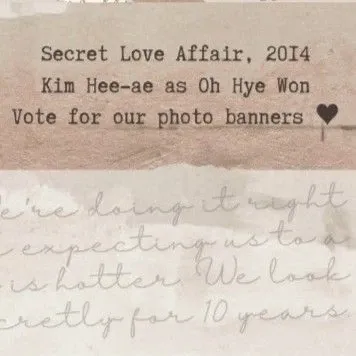 Secret Love Affair, 2014
Kim Hee-ae as Oh Hye Won
Vote for our photo banners ♥
e're doing it right
expecting us to a
is hotter. We look
cretly for 10 years.